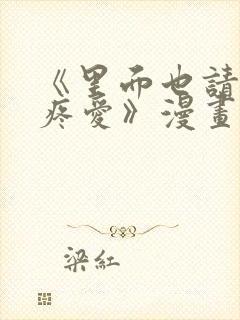 《里而也請
疼愛》漫畫
梁紅